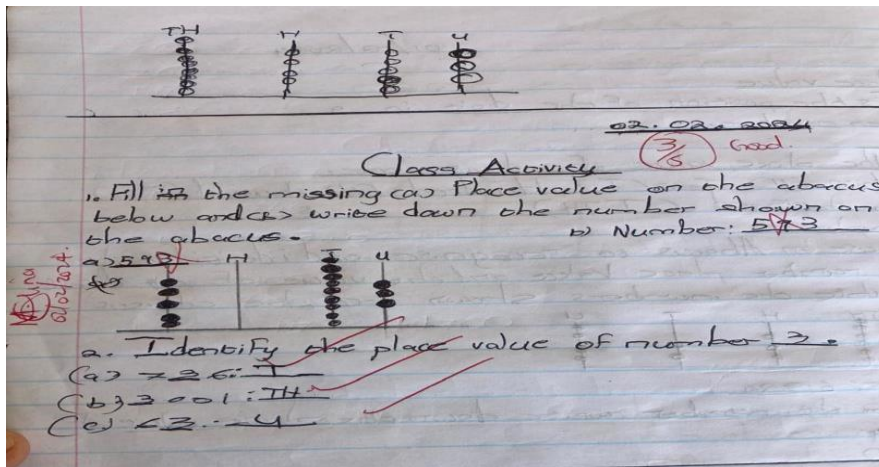 TH H T U
02.02.2024
3/5 Good.
Class Activity
1. Fill in the missing (a) Place value on the abacus
below and (b) write down the number shown on
the abacus. b) Number: 573
a) 573 H T U
02/02/2024.
2. Identify the place value of number 3.
(a) 736: T
(b) 3001: TH
(c) 63: U